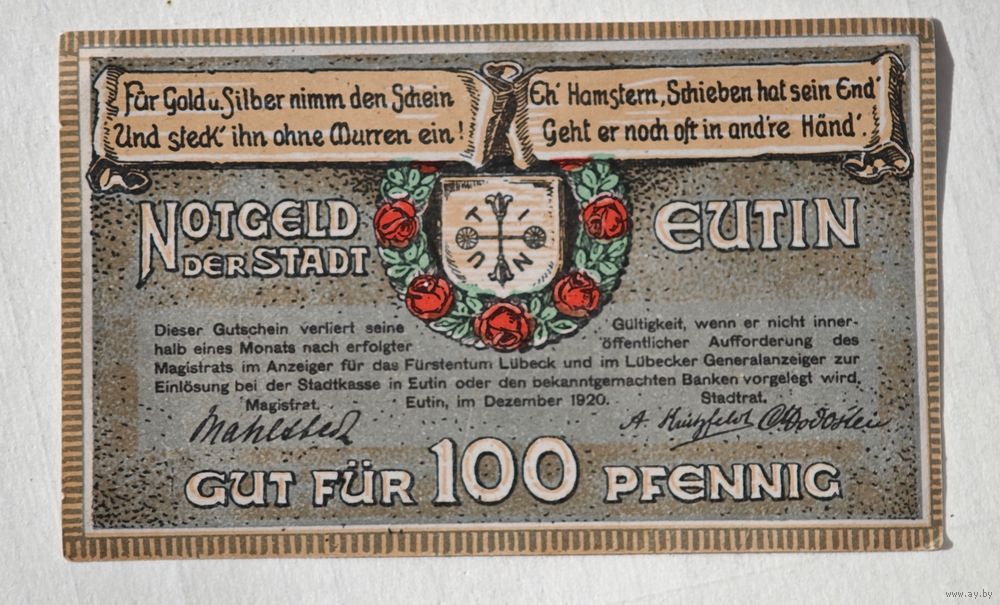 Für Gold u. Silber nimm den Schein
Und steck' ihn ohne Murren ein!
Eh' Hamstern, Schieben hat sein End'
Geht er noch oft in and're Händ'.
NOTGELD
DER STADT
EUTIN
EUTIN
Dieser Gutschein verliert seine Gültigkeit, wenn er nicht inner-
halb eines Monats nach erfolgter öffentlicher Aufforderung des
Magistrats im Anzeiger für das Fürstentum Lübeck und im Lübecker Generalanzeiger zur
Einlösung bei der Stadtkasse in Eutin oder den bekanntgemachten Banken vorgelegt wird.
Magistrat. Eutin, im Dezember 1920. Stadtrat.
Mahlstedt
GUT FÜR 100 PFENNIG
www.ay.by